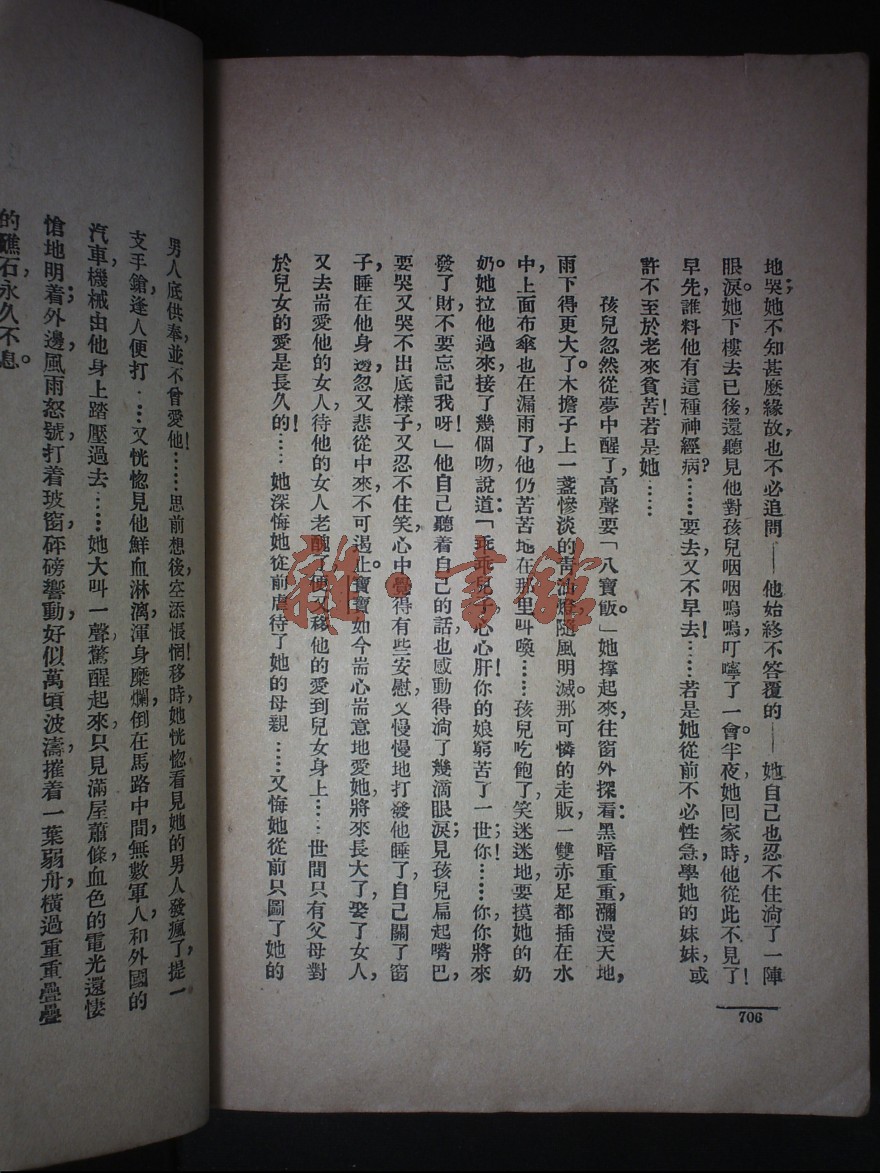 地哭；她不知甚麼緣故，也不必追問——他始終不答覆的——她自己也忍不住淌了一陣
眼淚。她下樓去已後，還聽見他對孩兒咽咽嗚嗚，叮嚀了一會。半夜她回家時，他從此不見了！
早先誰料他有這種神經病？……要去又不早去！……若是她從前不必性急，學她的妹妹，或
許不至於老來貧苦！若是她……
孩兒忽然從夢中醒了，高聲要「八寶飯。」她撐起來，往窗外探看：黑暗重重，瀰漫天地，
雨下得更大了。木擔子上一盞慘淡的青油燈隨風明滅。那可憐的走販，一雙赤足都插在水
中，上面布傘也在漏雨了，他仍苦苦地在那里叫喚……孩兒吃飽了，笑迷迷地要摸她的奶
奶。她拉他過來，接了幾個吻，說道：「乖乖兒子，心心肝！你的娘窮苦了一世，你！……你，你將來
發了財，不要忘記我呀！」他自己聽着自己的話，也感動得淌了幾滴眼淚；見孩兒扁起嘴巴，
要哭又哭不出底樣子，又忍不住笑，心中覺得有些安慰，又慢慢地打發他睡了，自己關了窗
子，睡在他身邊，忽又悲從中來，不可遏止。寶寶如今耑心耑意地愛她，將來長大了，娶了女人，
又去耑愛他的女人，待他的女人老醜了，便又移他的愛到兒女身上……世間只有父母對
於兒女的愛是長久的！……她深悔她從前虐待了她的母親……又悔她從前只圖了她的
706
男人底供奉，並不曾愛他！……思前想後，空添悵惘。移時，她恍惚看見她的男人發瘋了，提一
支手鎗，逢人便打……又恍惚見他鮮血淋漓，渾身糜爛，倒在馬路中間，無數軍人和外國的
汽車，機械由他身上踏壓過去……她大叫一聲，驚醒起來，只見滿屋蕭條，血色的電光還悽
愴地明着；外邊風雨怒號，打着玻窗，砰磅響動，好似萬頃波濤，摧着一葉弱舟，橫過重重疊疊
的礁石，永久不息。
雜·書館